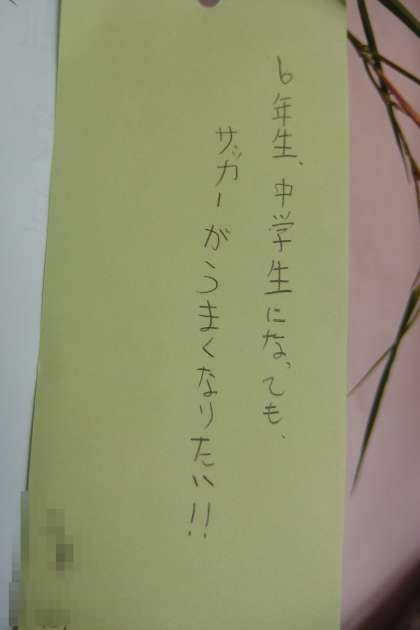 6年生、中学生になっても、
サッカーがうまくなりたい!!